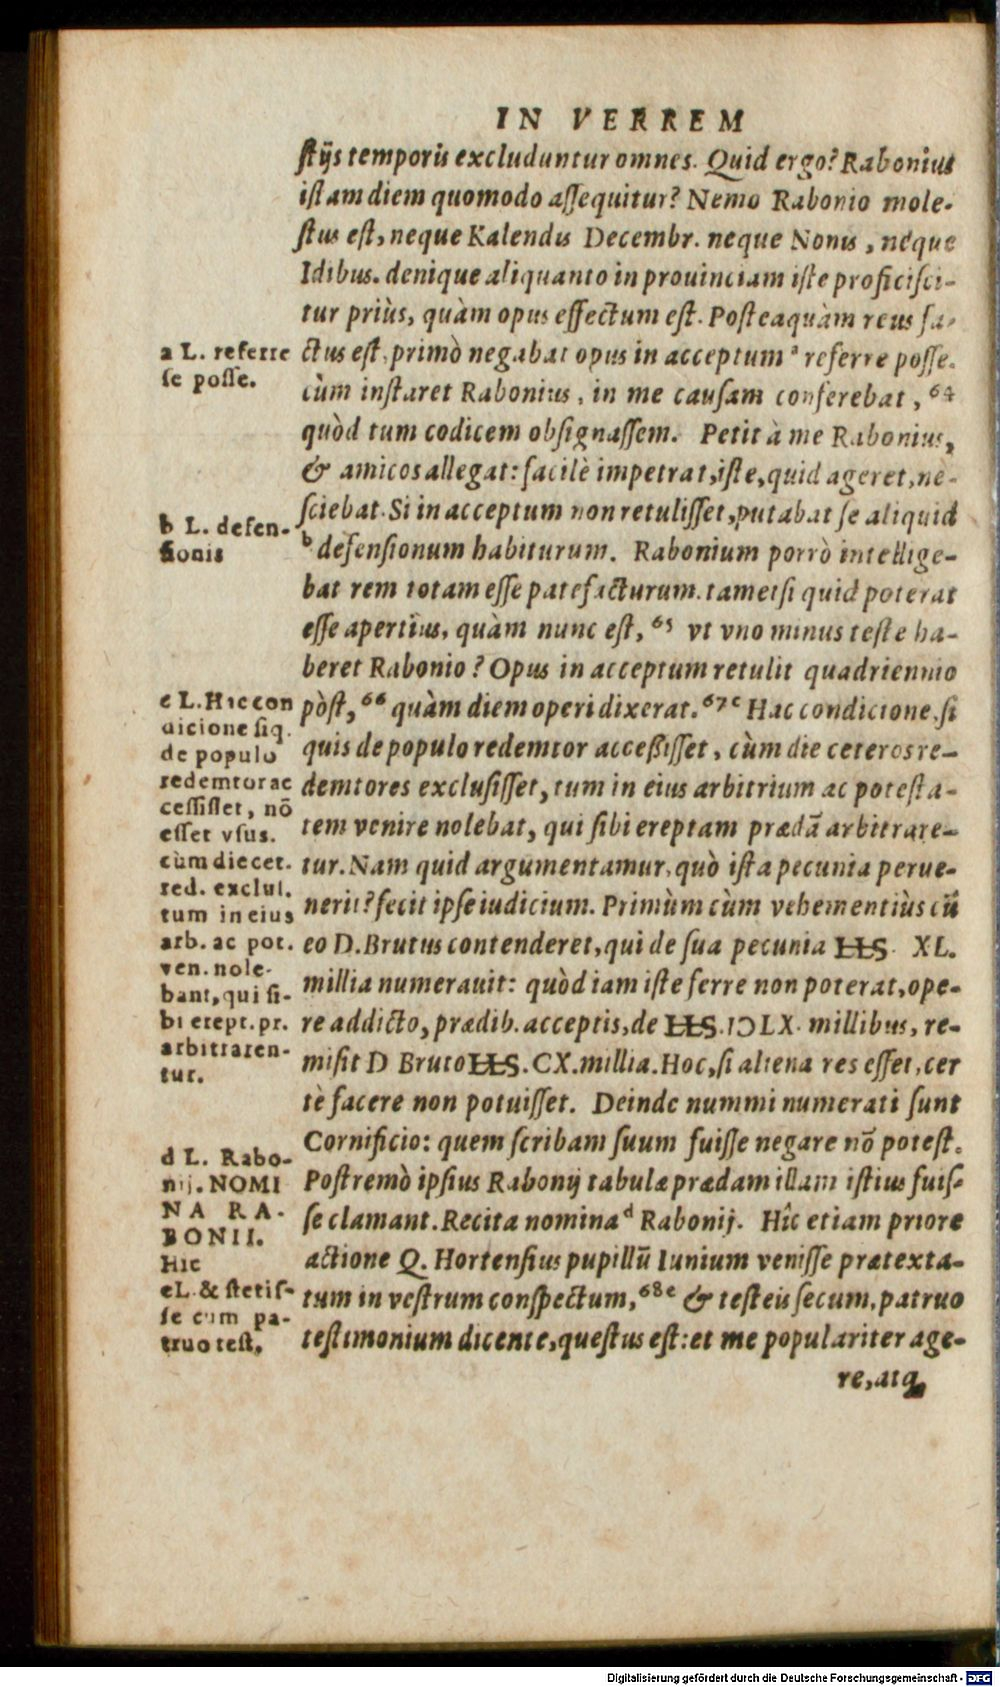 IN VERREM
stijs temporis excluduntur omnes. Quid ergo? Rabonius
istam diem quomodo assequitur? Nemo Rabonio mole-
stus est, neque Kalendis Decembr. neque Nonis, neque
Idibus. denique aliquanto in prouinciam iste proficisci-
tur priùs, quàm opus effectum est. Posteaquàm reus fa-
ctus est, primò negabat opus in acceptum ª referre posse.
cùm instaret Rabonius, in me causam conferebat, 64
quòd tum codicem obsignassem. Petit à me Rabonius,
& amicos allegat: facilè impetrat, iste, quid ageret, ne-
sciebat. Si in acceptum non retulisset, putabat se aliquid
ᵇ defensionum habiturum. Rabonium porrò intellige-
bat rem totam esse patefacturum. tametsi quid poterat
esse apertius, quàm nunc est, 65 vt vno minus teste ha-
beret Rabonio? Opus in acceptum retulit quadriennio
pòst, 66 quàm diem operi dixerat. 67 ᶜ Hac condicione, si
quis de populo redemtor acceßisset, cùm die ceteros re-
demtores exclusisset, tum in eius arbitrium ac potesta-
tem venire nolebat, qui sibi ereptam prædã arbitrare-
tur. Nam quid argumentamur, quò ista pecunia perue-
nerit? fecit ipse iudicium. Primùm cùm vehementiùs cũ
eo D. Brutus contenderet, qui de sua pecunia HS. XL.
millia numerauit: quòd iam iste ferre non poterat, ope-
re addicto, prædib. acceptis, de HS. IↃLX. millibus, re-
misit D Bruto HS. CX. millia. Hoc, si aliena res esset, cer
tè facere non potuisset. Deinde nummi numerati sunt
Cornificio: quem scribam suum fuisse negare nõ potest.
Postremò ipsius Rabonij tabulæ prædam illam istius fuis-
se clamant. Recita nomina ᵈ Rabonij. Hîc etiam priore
actione Q. Hortensius pupillũ Iunium venisse prætexta-
tum in vestrum conspectum, 68 ᵉ & testeis secum, patruo
testimonium dicente, questus est: et me populariter age-
re, atq
a L. referre
se posse.
b L. defen-
sionis
c L. Hic con
dicione siq.
de populo
redemtor ac
cessisset, nõ
esset vsus.
cùm die cet.
red. exclus.
tum in eius
arb. ac pot.
ven. nole-
bant, qui si-
bi erept. pr.
arbitraren-
tur.
d L. Rabo-
nij. NOMI
NA RA-
BONII.
Hic
e L. & stetis-
se cum pa-
truo test.
Digitalisierung gefördert durch die Deutsche Forschungsgemeinschaft - DFG